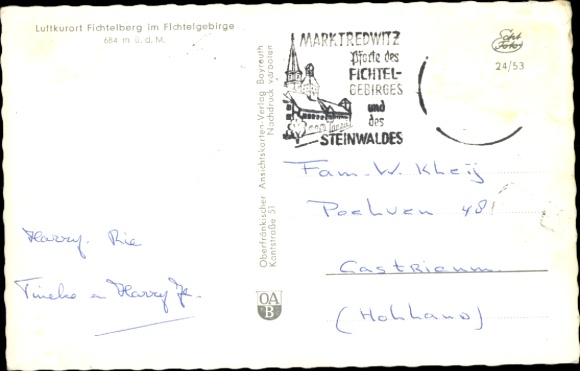 Luftkurort Fichtelberg im Fichtelgebirge
684 m ü. d. M.
Harry. Rie
Tineke en Harry Jr.
Oberfränkischer Ansichtskarten-Verlag Bayreuth
Kantstraße 51 Nachdruck verboten
OA
B
MARKTREDWITZ
Pforte des
FICHTEL-
GEBIRGES
und
des
STEINWALDES
Echt
Foto
24/53
Fam. W. Kleij
48
Castricum
(Holland)